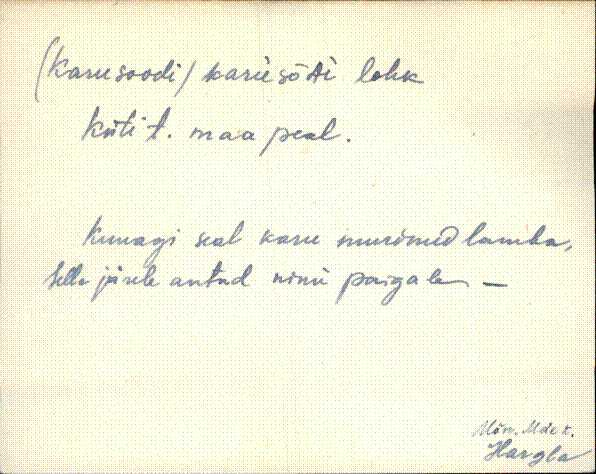 (Karusoodi) karùsõdi lohk
Küti t. maa peal.
Kunagi seal karu murdnud lamba,
selle järele antud nimi paigale —
Mõn. Mdex.
Hargla